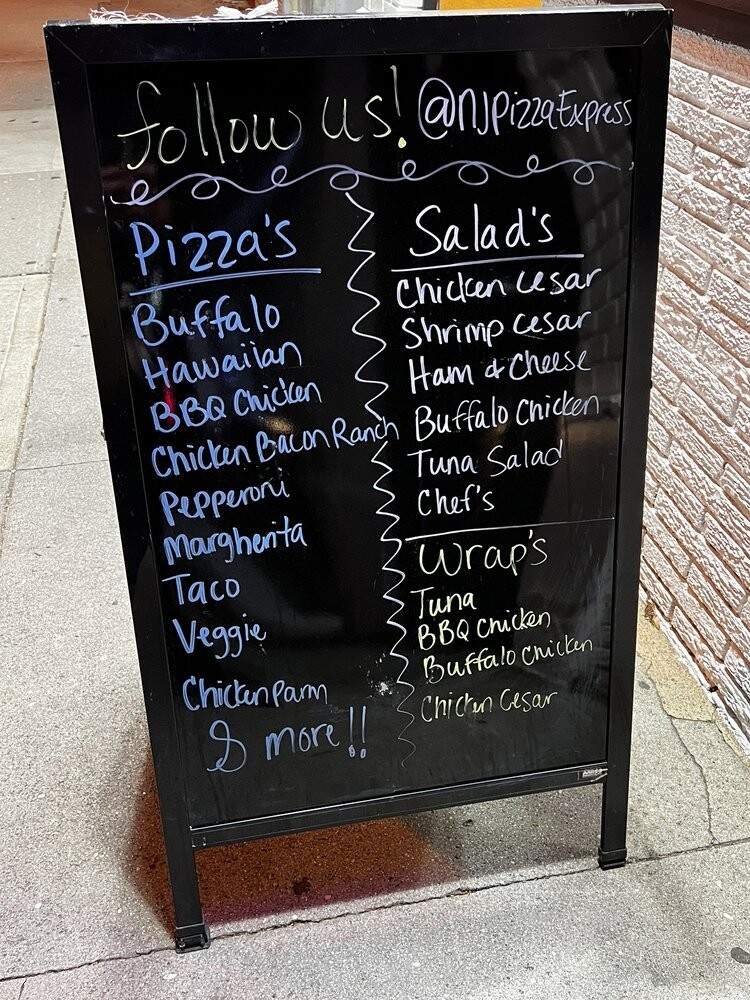 follow us! @NJPizzaExpress
Pizza's
Buffalo
Hawaiian
BBQ Chicken
Chicken Bacon Ranch
Pepperoni
Margherita
Taco
Veggie
Chicken Parm
& more!!
Salad's
Chicken Cesar
Shrimp Cesar
Ham & Cheese
Buffalo Chicken
Tuna Salad
Chef's
Wrap's
Tuna
BBQ Chicken
Buffalo Chicken
Chicken Cesar